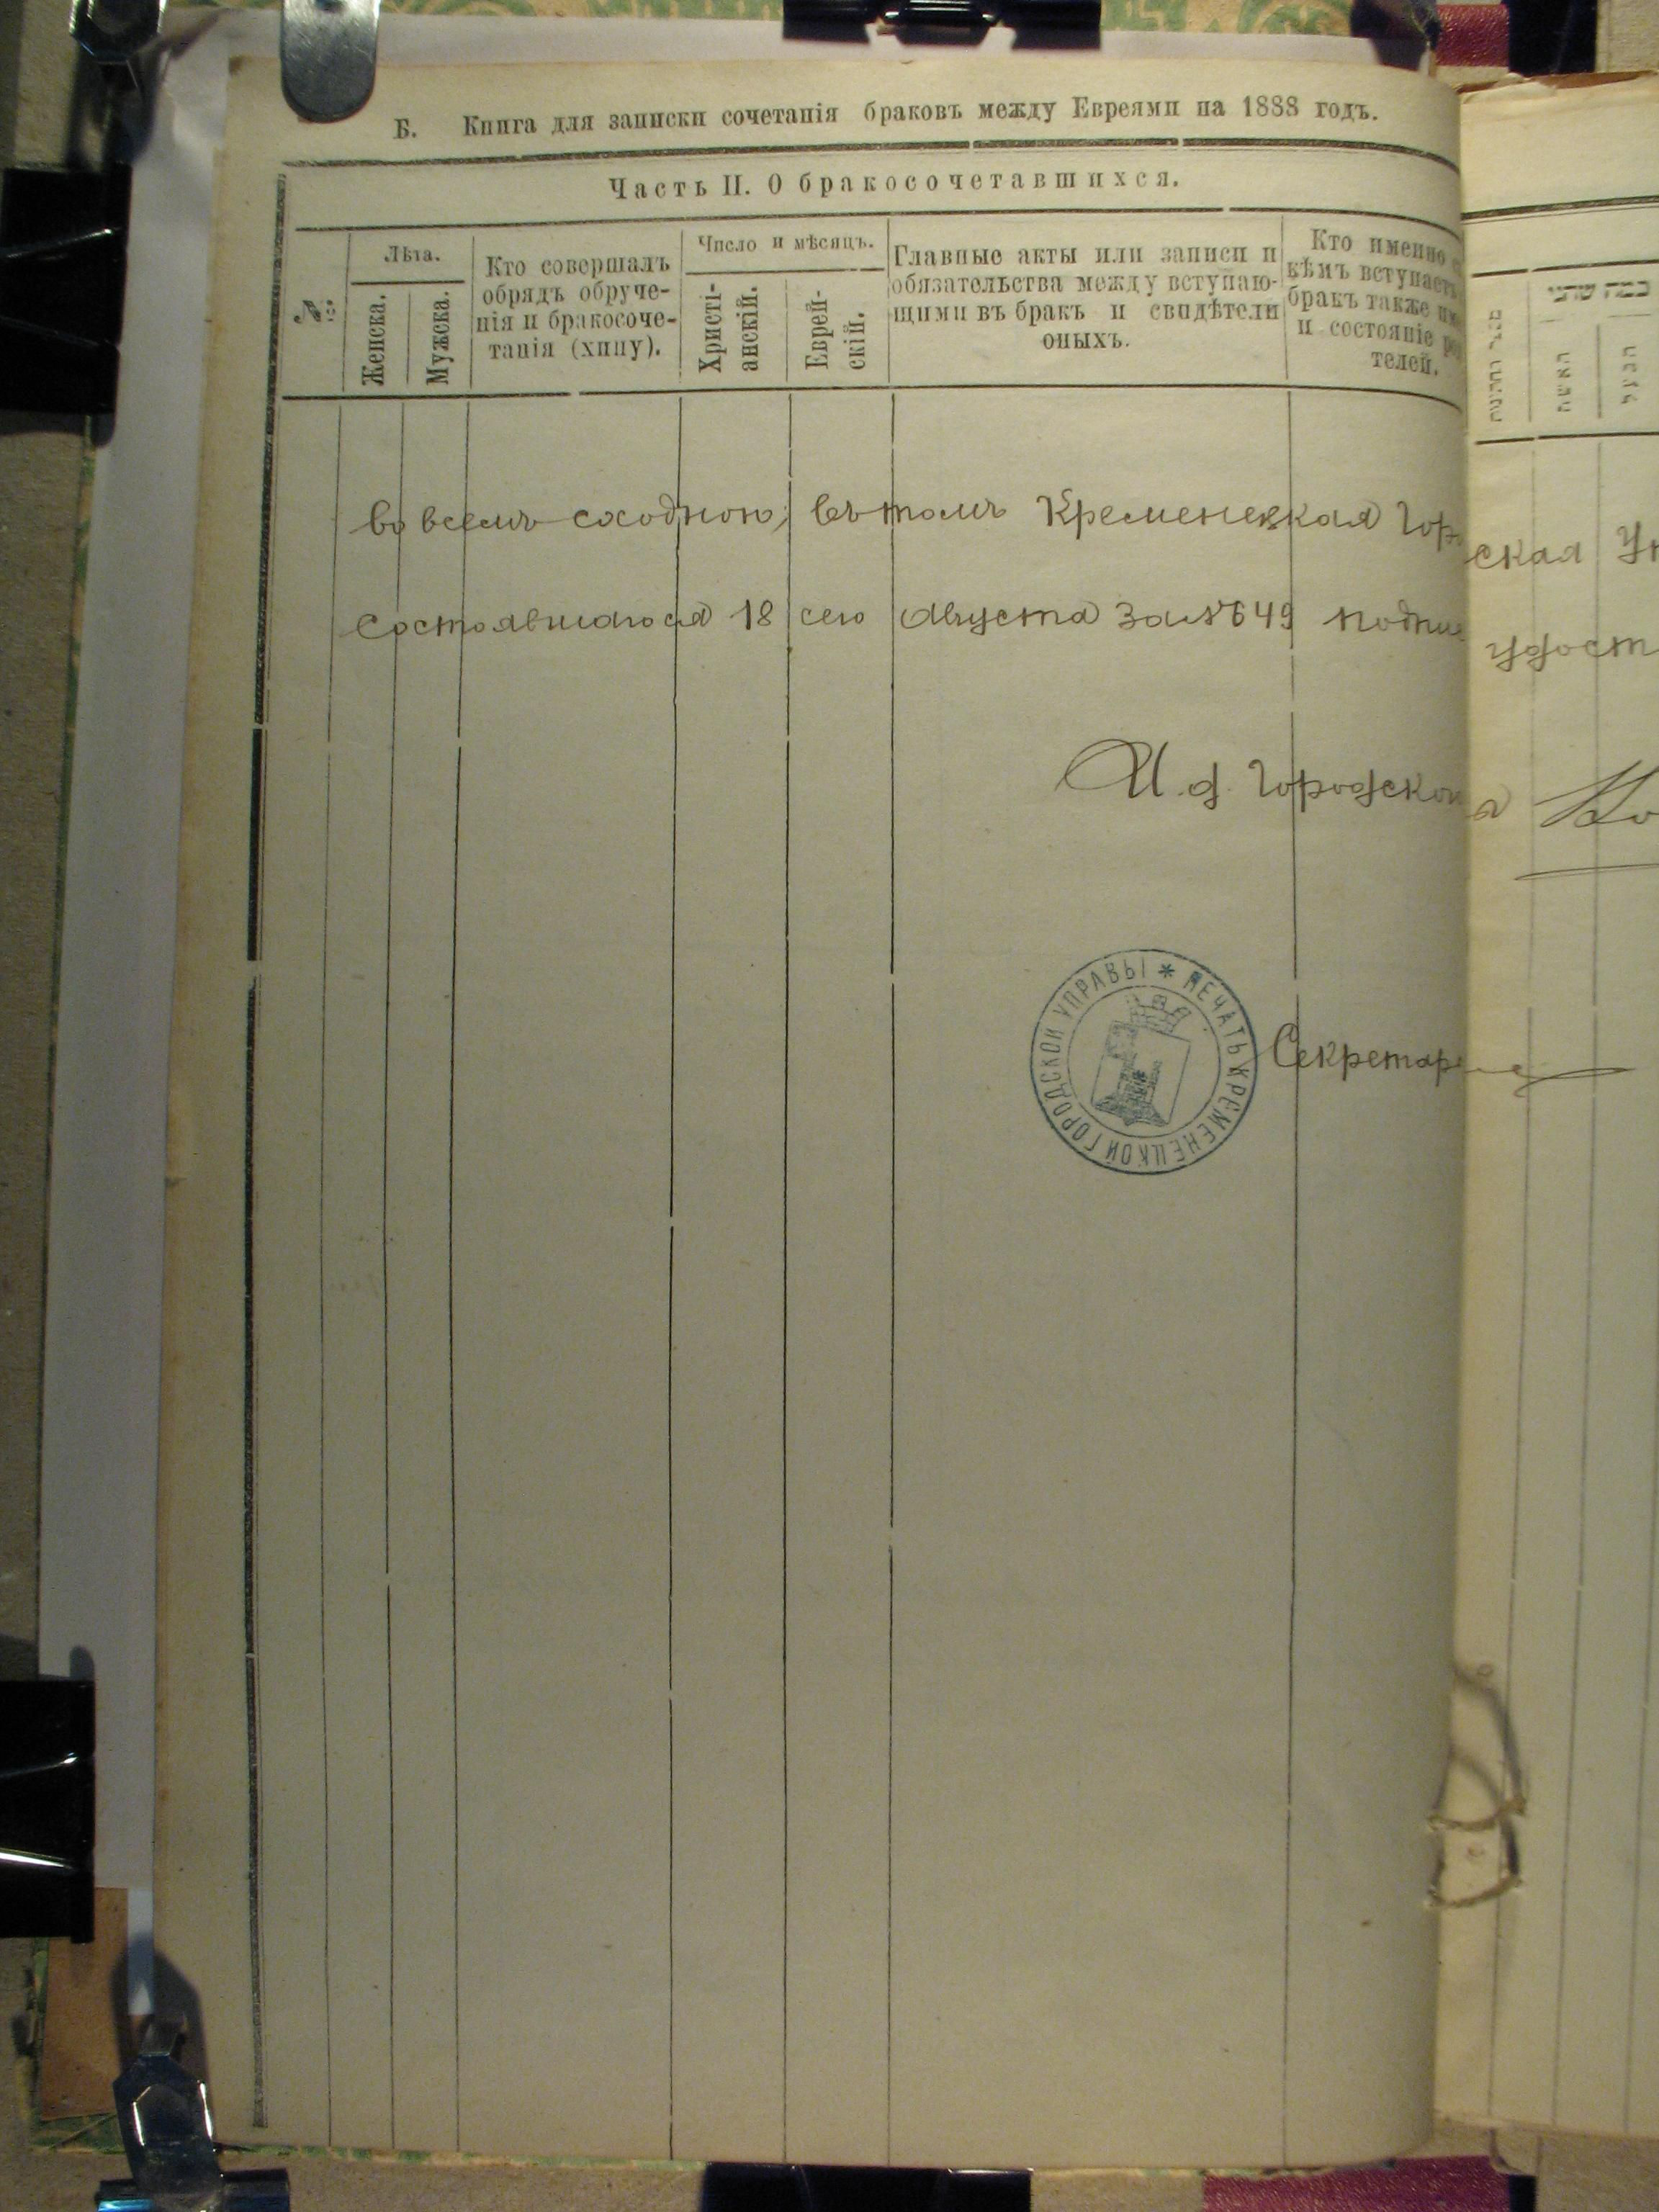 Б. Книга для записки сочетанія браковъ между Евреями на 1888 годъ.
Часть II. О бракосочетавшихся.
№
Лѣта.
Женска.
Мужска.
Кто совершалъ
обрядъ обруче-
нія и бракосоче-
танія (хипу).
Число и мѣсяцъ.
Христі-
анскій.
Еврей-
скій.
Главные акты или записи и
обязательства между вступаю-
щими въ бракъ и свидѣтели
оныхъ.
Кто именно
кѣмъ вступаетъ
бракъ также
и состояніе
телей.
во всемъ сходною, въ томъ Кременецкая Гор
состоявшагося 18 сего Августа за № 649
И. д. Городского
Секретарь
ПЕЧАТЬ КРЕМЕНЕЦКОЙ ГОРОДСКОЙ УПРАВЫ *
כמה שני
האשה
ская
удост